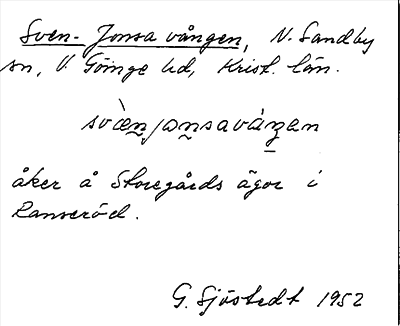 Sven-Jonsa vången, N. Sandby
sn, V. Göinge hd, Krist. län.
svὲnjonsavàŋen
åker å Storegårds ägor i
Ranseröd.
G. Sjöstedt 1952